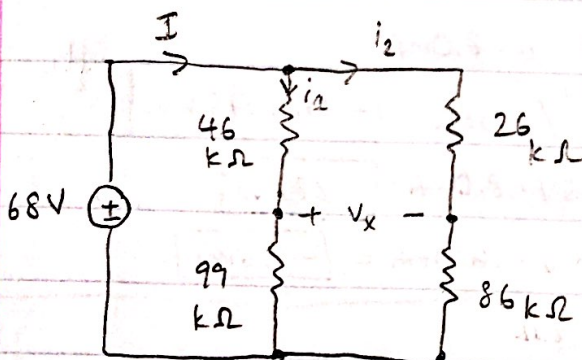 I
i₂
i₁
46
kΩ
26
kΩ
68V
±
+ Vₓ −
99
kΩ
86kΩ